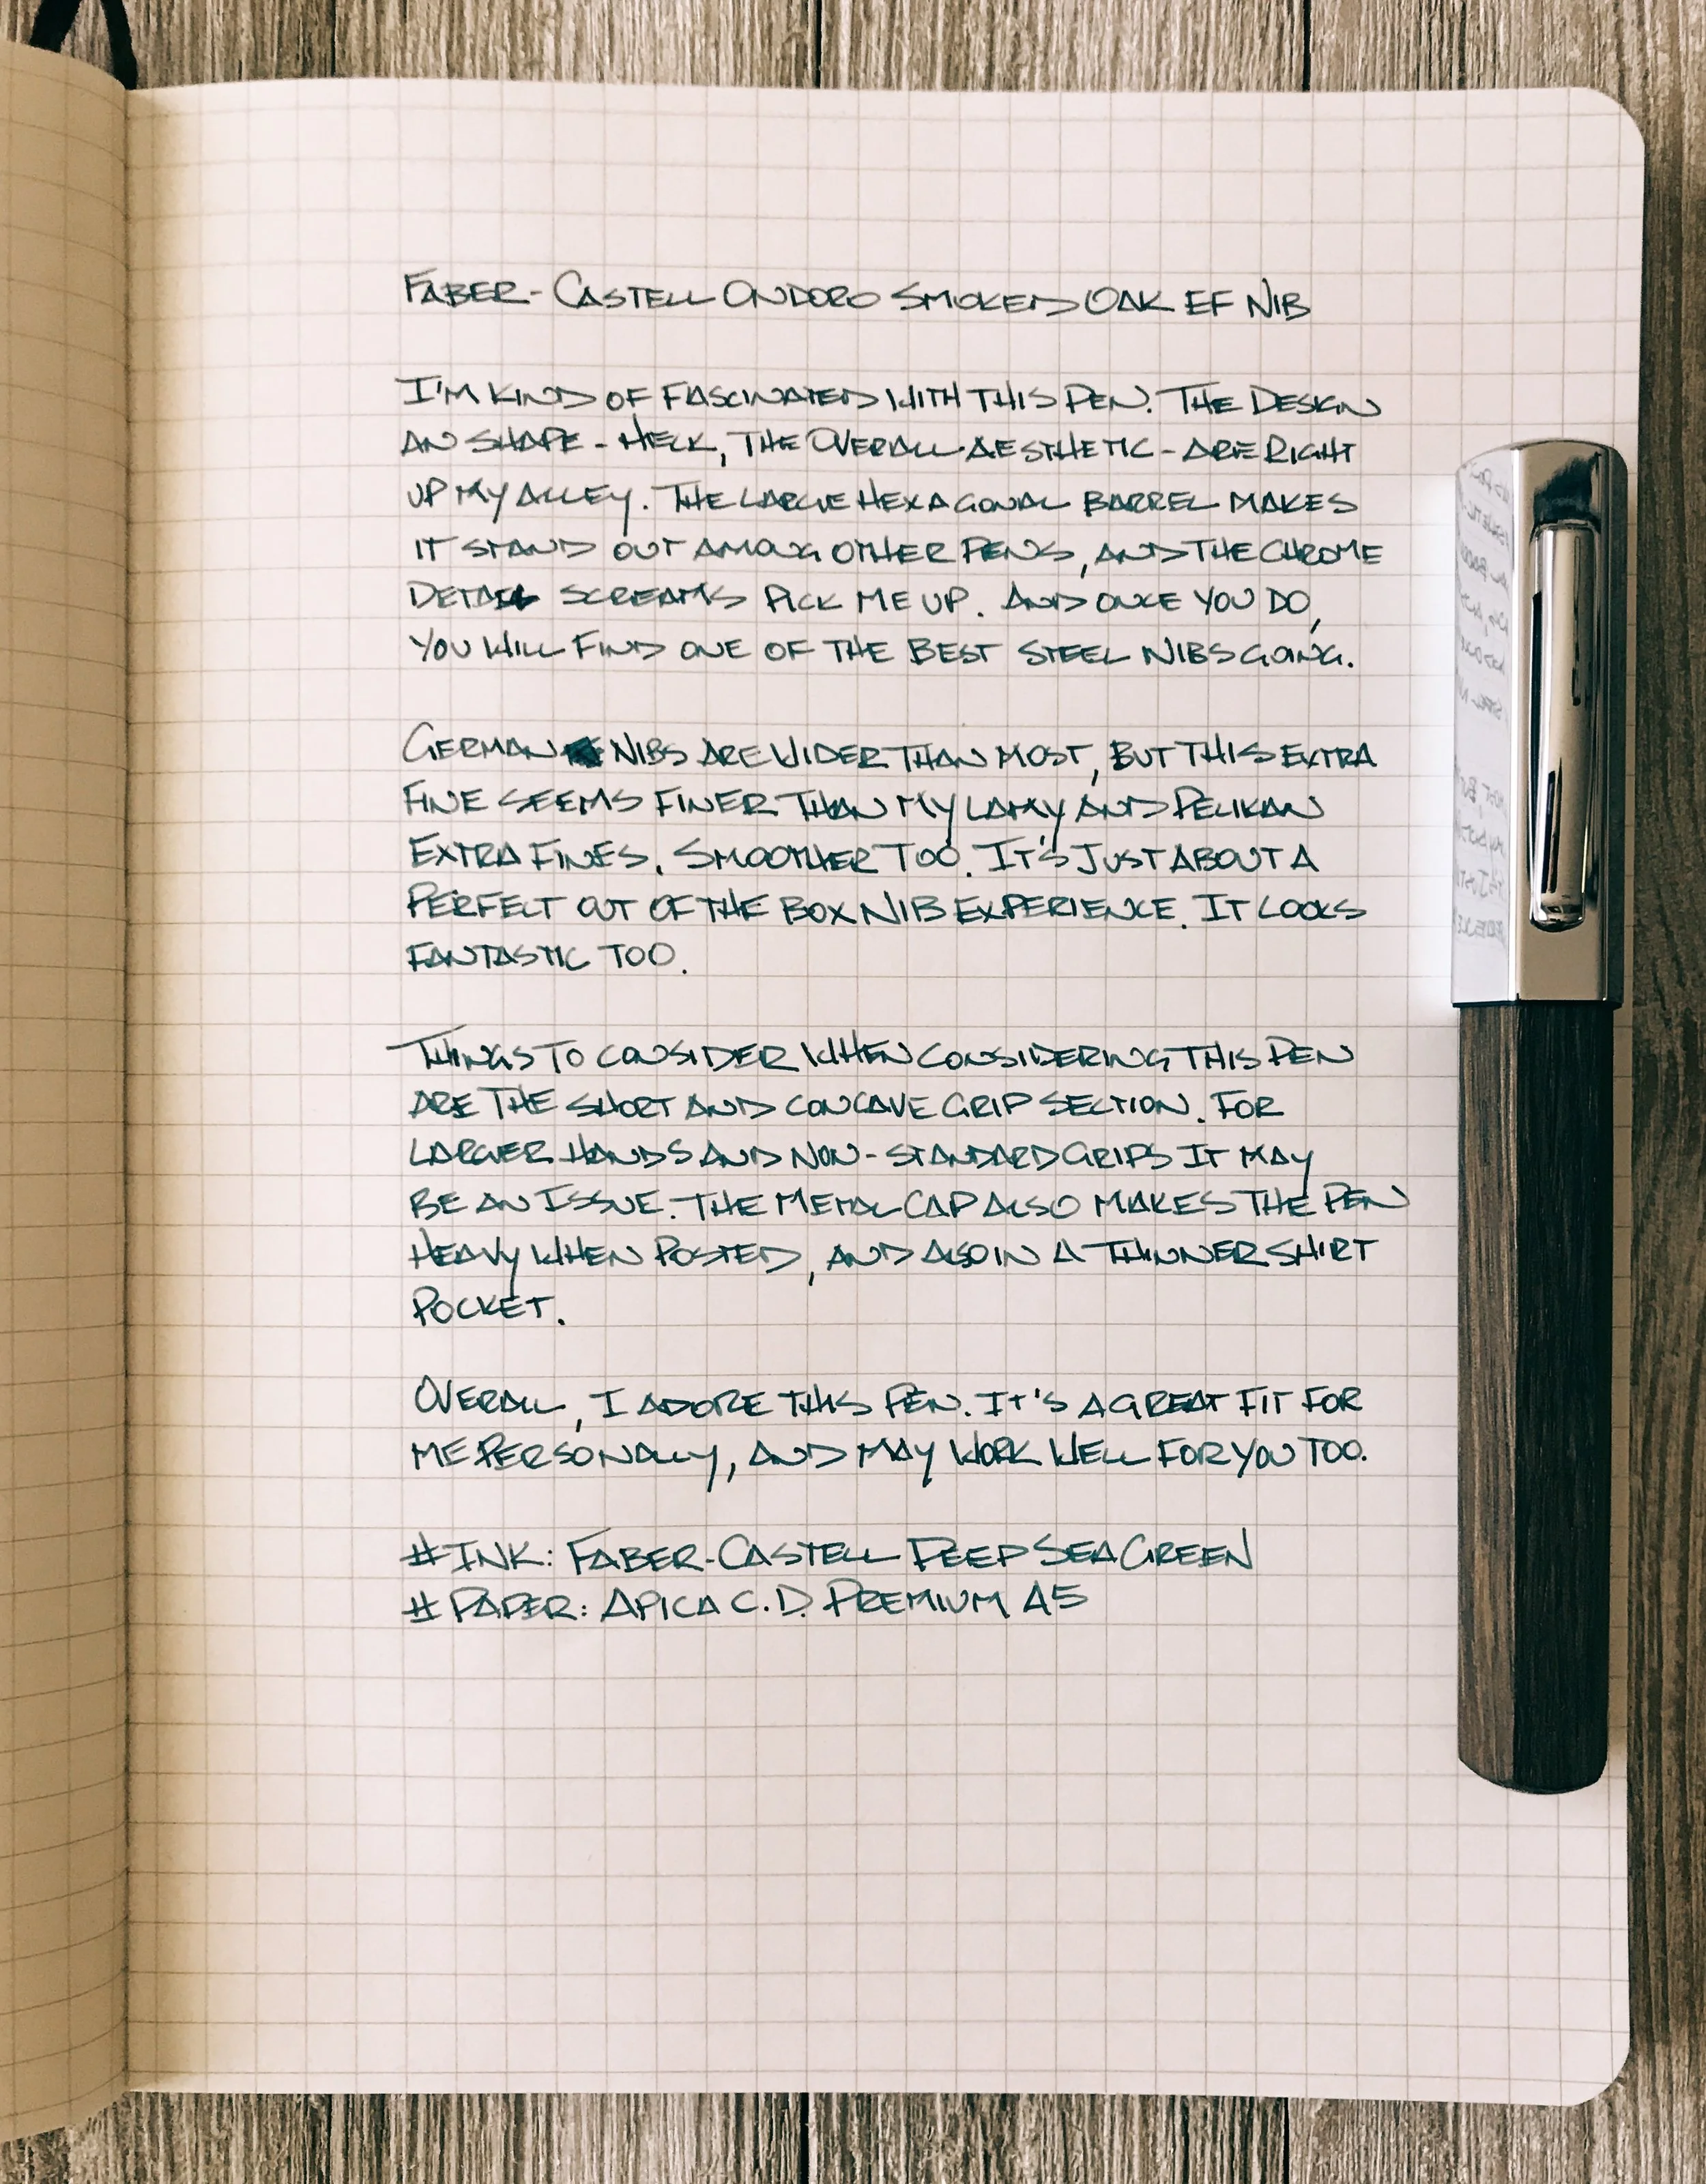 FABER-CASTELL ONDORO SMOKED OAK EF NIB
I'M KIND OF FASCINATED WITH THIS PEN. THE DESIGN
AN SHAPE - HECK, THE OVERALL AESTHETIC - ARE RIGHT
UP MY ALLEY. THE LARGE HEXAGONAL BARREL MAKES
IT STAND OUT AMONG OTHER PENS, AND THE CHROME
DETAIL SCREAMS PICK ME UP. AND ONCE YOU DO,
YOU WILL FIND ONE OF THE BEST STEEL NIBS GOING.
GERMAN NIBS ARE WIDER THAN MOST, BUT THIS EXTRA
FINE SEEMS FINER THAN MY LAMY AND PELIKAN
EXTRA FINES. SMOOTHER TOO. IT'S JUST ABOUT A
PERFECT OUT OF THE BOX NIB EXPERIENCE. IT LOOKS
FANTASTIC TOO.
THINGS TO CONSIDER WHEN CONSIDERING THIS PEN
ARE THE SHORT AND CONCAVE GRIP SECTION. FOR
LARGER HANDS AND NON-STANDARD GRIPS IT MAY
BE AN ISSUE. THE METAL CAP ALSO MAKES THE PEN
HEAVY WHEN POSTED, AND ALSO IN A THINNER SHIRT
POCKET.
OVERALL, I ADORE THIS PEN. IT'S A GREAT FIT FOR
ME PERSONALLY, AND MAY WORK WELL FOR YOU TOO.
# INK: FABER-CASTELL DEEP SEA GREEN
# PAPER: APICA C.D. PREMIUM A5